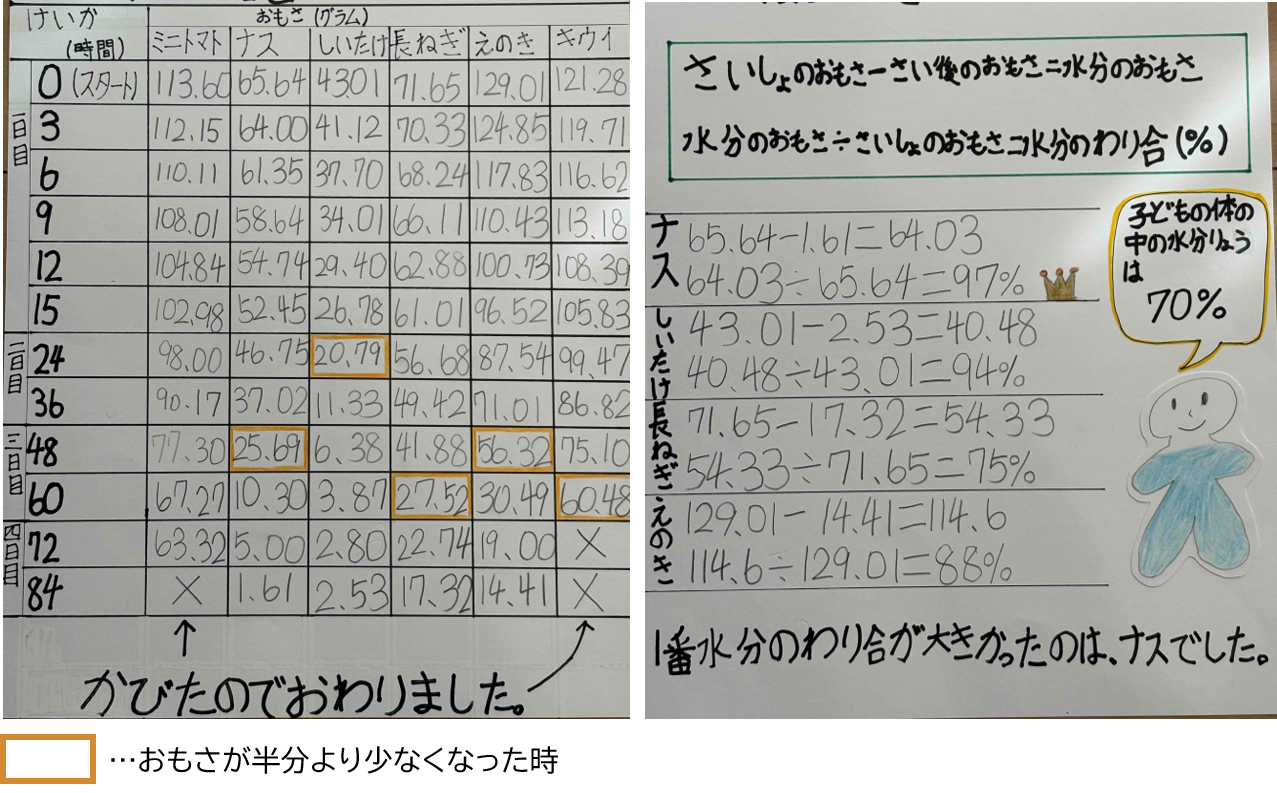 けいか
(時間)
おもさ(グラム)
ミニトマト ナス しいたけ 長ねぎ えのき キウイ
一日目
0(スタート) 113.60 65.64 43.01 71.65 129.01 121.28
3 112.15 64.00 41.12 70.33 124.85 119.71
6 110.11 61.35 37.70 68.24 117.83 116.62
9 108.01 58.64 34.01 66.11 110.43 113.18
12 104.84 54.74 29.40 62.88 100.73 108.39
15 102.98 52.45 26.78 61.01 96.52 105.83
二日目
24 98.00 46.75 20.79 56.68 87.54 99.47
36 90.17 37.02 11.33 49.42 71.01 86.82
三日目
48 77.30 25.69 6.38 41.88 56.32 75.10
60 67.27 10.30 3.87 27.52 30.49 60.48
四日目
72 63.32 5.00 2.80 22.74 19.00 ×
84 × 1.61 2.53 17.32 14.41 ×
かびたのでおわりました。
…おもさが半分より少なくなった時
さいしょのおもさーさい後のおもさ=水分のおもさ
水分のおもさ÷さいしょのおもさ=水分のわり合(%)
ナス
65.64-1.61=64.03
64.03÷65.64=97%
しいたけ
43.01-2.53=40.48
40.48÷43.01=94%
長ねぎ
71.65-17.32=54.33
54.33÷71.65=75%
えのき
129.01-14.41=114.6
114.6÷129.01=88%
子どもの体の
中の水分りょう
は
70%
1番水分のわり合が大きかったのは、ナスでした。